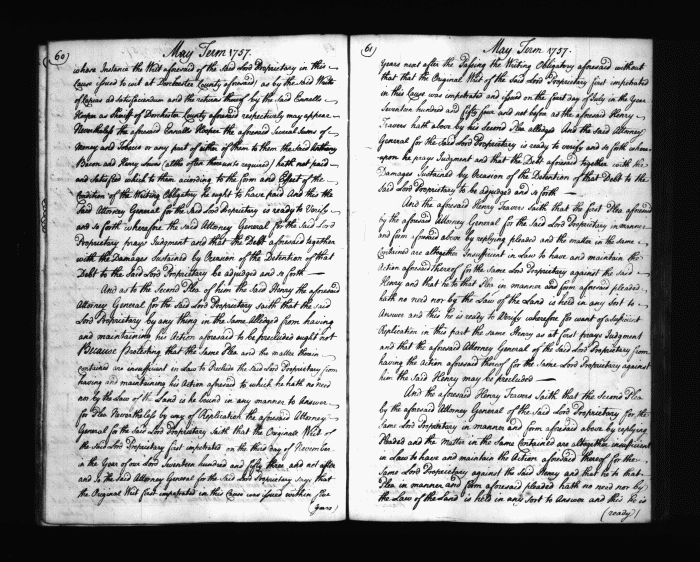 60)
May Term 1757.
where Instance the Writ aforesaid of the Said Lord Proprietary in this
Cause issued to wit at Dorchester County aforesaid) as by the Said Writs
of Capias ad Satisfaciendum and the returns thereof by the Said Ennalls
Hooper as Sheriff of Dorchester County aforesaid respectively may appear
Nevertheless the aforesaid Ennalls Hooper the aforesaid Several Sums of
money and Tobacco or any part of either of them to them the said Anthony
Bacon and Henry Lowes (altho often thereunto required) hath not paid
and Satisfied which to them according to the form and Effect of the
Condition of the Writing Obligatory he ought to have paid And this the
Said Attorney General for the Said Lord Proprietary is ready to Verify
and so forth wherefore the said Attorney General for the Said Lord
Proprietary prays Judgment and that the Debt aforesaid together
with the Damages Sustained by Occasion of the Detention of that
Debt to the Said Lord Proprietary be adjudged and so forth
And as to the Second Plea of him the Said Henry the aforesaid
Attorney General for the Said Lord Proprietary Saith that the Said
Lord Proprietary by any thing in the Same Alledged from having
and maintaining his Action aforesaid to be precluded ought not
Because Protesting that the Same Plea and the matter therein
contained are insufficient in Law to Preclude the Said Lord Proprietary from
having and maintaining his Action aforesaid to which he hath no need
nor by the Law of the Land is he bound in any manner to Answer
for Plea Nevertheless by way of Replication the aforesaid Attorney
General for the Said Lord Proprietary Saith that the Original Writ of
the Said Lord Proprietary first impetrated on the third day of November
in the Year of our Lord Seventeen hundred and fifty three and not after
and So the Said Attorney General for the Said Lord Proprietary Says that
the Original Writ first impetrated in this Cause was issued within five
(years)
61)
May Term 1757.
Years next after the Passing the Writing Obligatory aforesaid without
that that the Original Writ of the Said Lord Proprietary first impetrated
in this Cause was impetrated and issued on the first day of July in the Year
Seventeen hundred and fifty four and not before as the aforesaid Henry
Travers hath above by his Second Plea alledged And the Said Attorney
General for the Said Lord Proprietary is ready to verify and so forth where-
upon he prays Judgment and that the Debt aforesaid together with the
Damages Sustained by Occasion of the Detention of that Debt to the
Said Lord Proprietary to be adjudged and so forth
And the aforesaid Henry Travers Saith that the first Plea aforesaid
by the aforesaid Attorney General for the Said Lord Proprietary in manner
and form aforesaid above by replying pleaded and the matter in the same
Contained are altogether Insufficient in Law to have and maintain the
Action aforesaid thereof for the Same Lord Proprietary against the Said
Henry and that he to that Plea in manner and form aforesaid pleaded
hath no need nor by the Law of the Land is held in any Sort to
Answer and this he is ready to Verify wherefore for want of a Sufficient
Replication in this part the same Henry as at first prays Judgment
and that the aforesaid Attorney General of the Said Lord Proprietary from
having the Action aforesaid thereof for the Same Lord Proprietary against
him the Said Henry may be precluded
And the aforesaid Henry Travers Saith that the Second Plea
by the aforesaid Attorney General of the Said Lord Proprietary for the
Same Lord Proprietary in manner and form aforesaid above by replying
Pleaded and the matter in the Same Contained are altogether insufficient
in Law to have and maintain the Action aforesaid thereof for the
Same Lord Proprietary against the said Henry and that he to that
Plea in manner and form aforesaid pleaded hath no need nor by
the Law of the Land is held in any Sort to Answer and this he is
(ready)